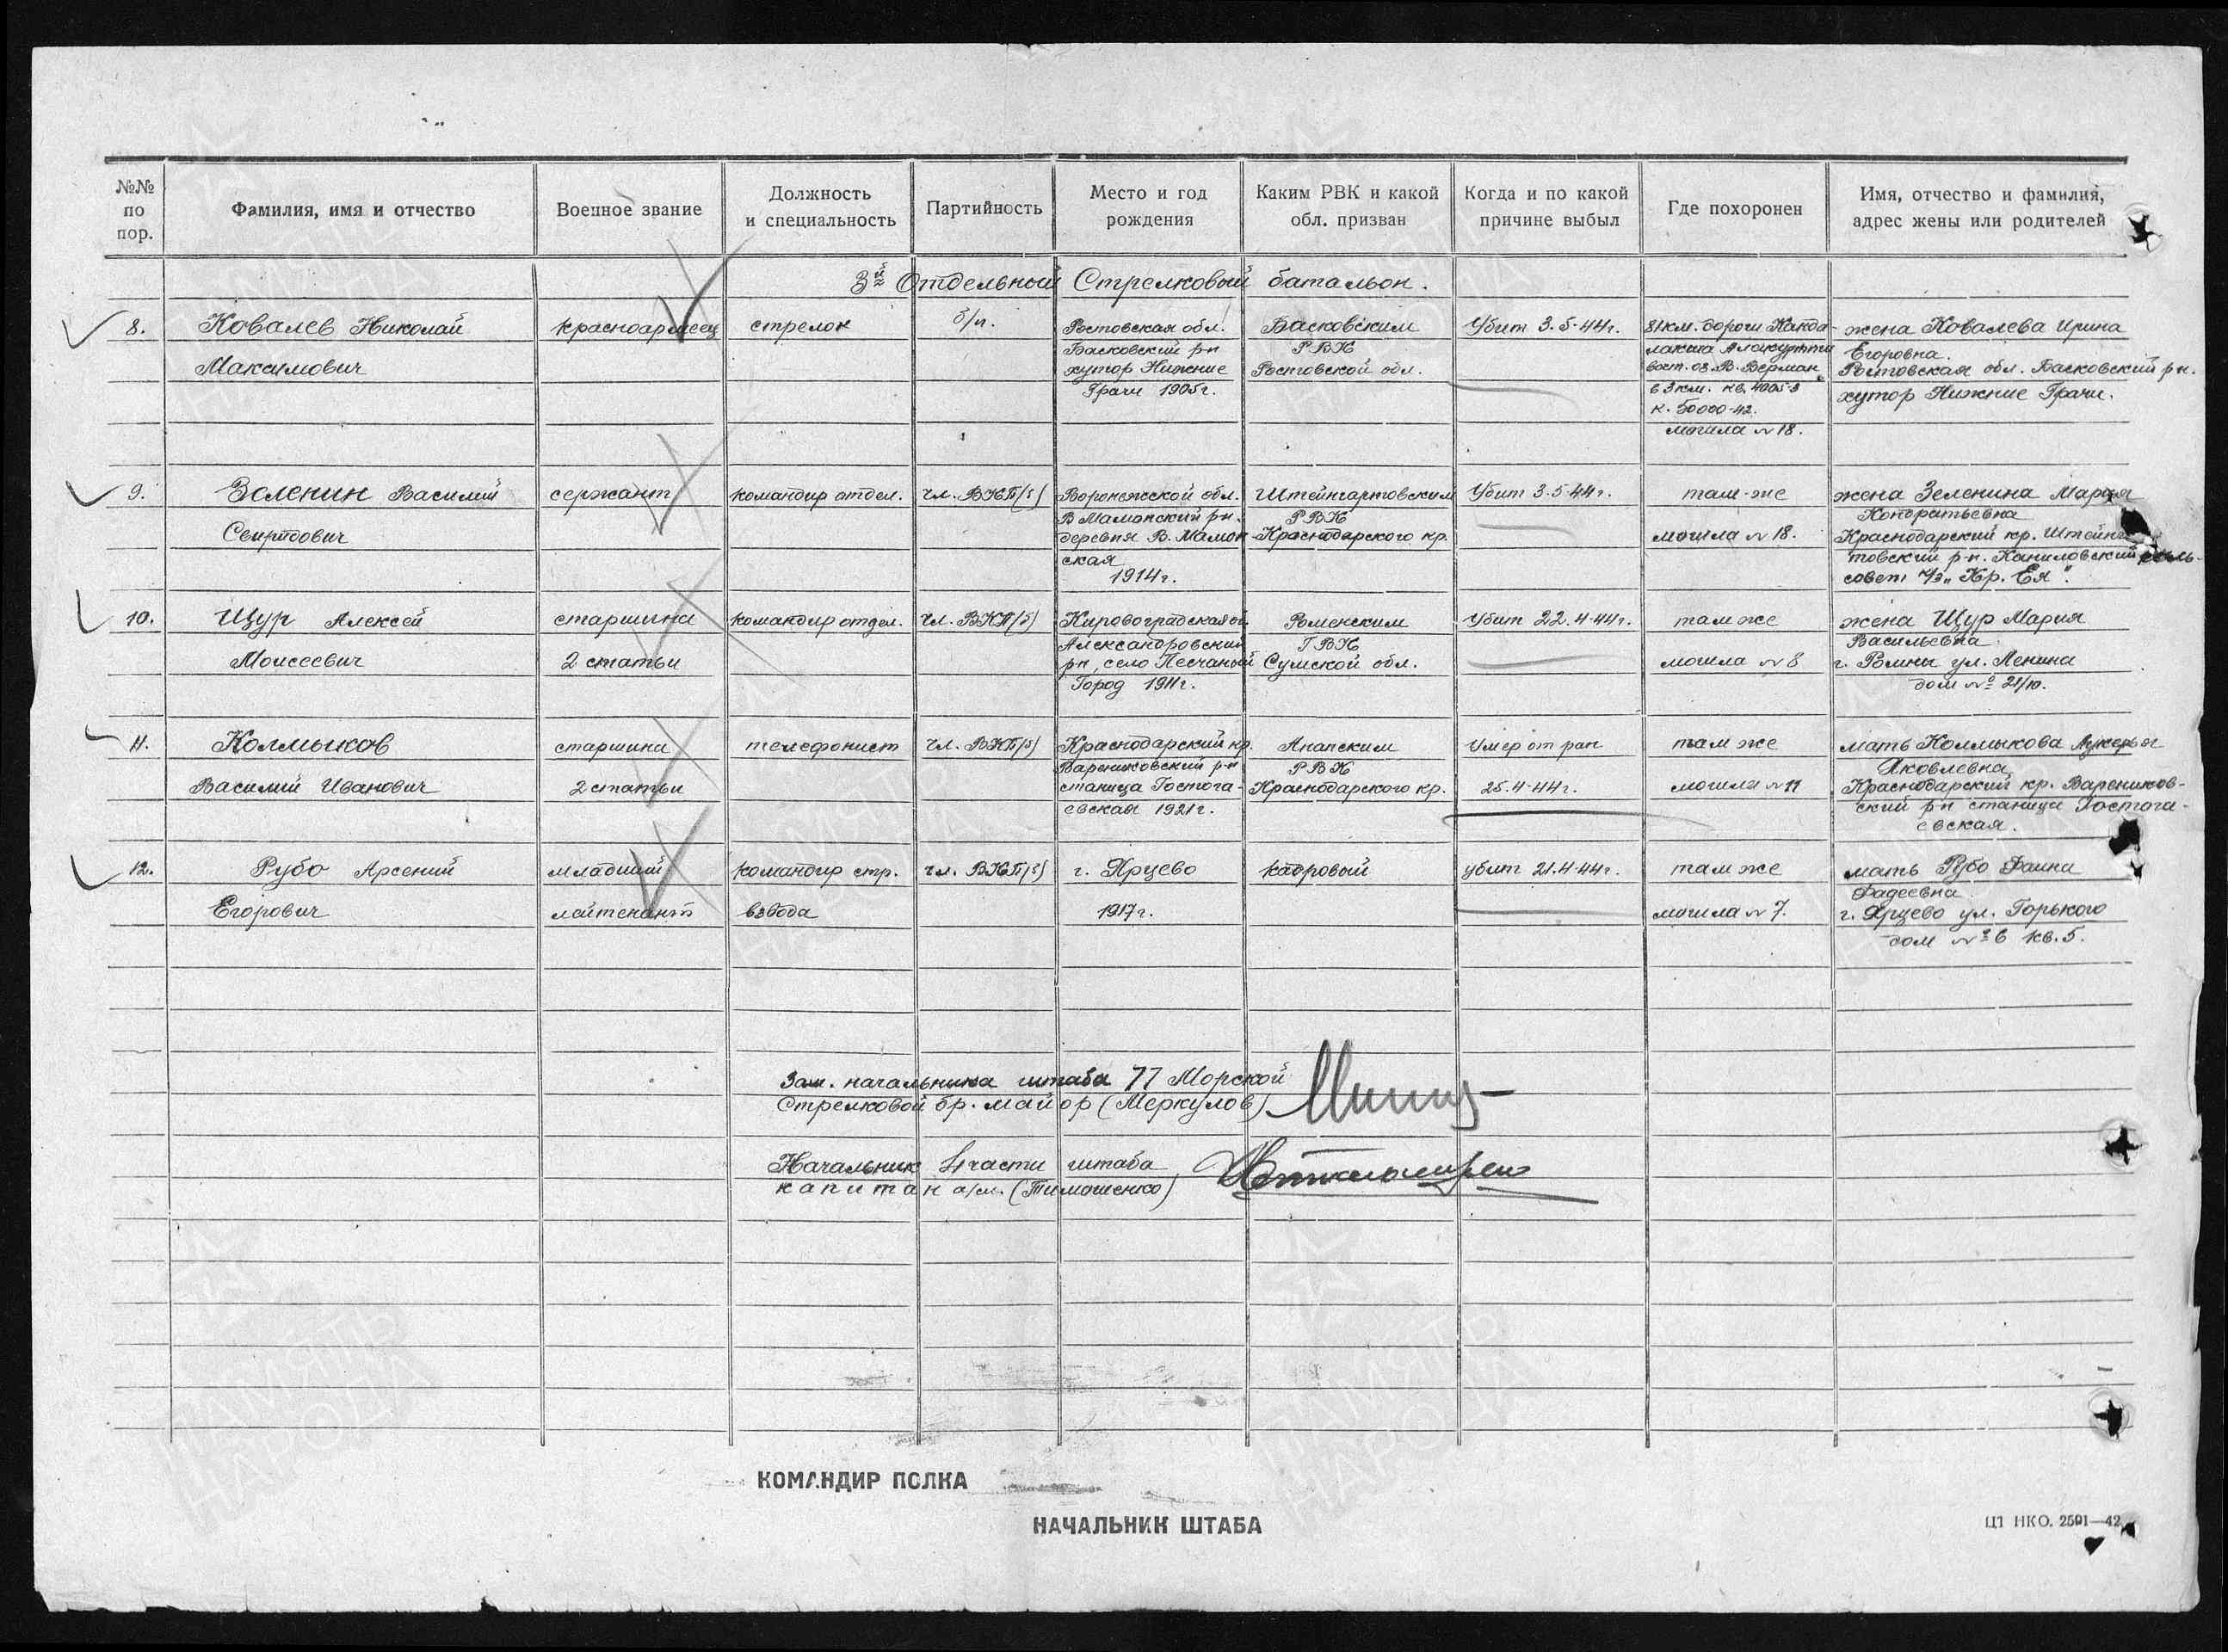 №№ по пор.
Фамилия, имя и отчество
Военное звание
Должность и специальность
Партийность
Место и год рождения
Каким РВК и какой обл. призван
Когда и по какой причине выбыл
Где похоронен
Имя, отчество и фамилия, адрес жены или родителей
3й Отдельный Стрелковый батальон.
8.
Ковалев Николай
Максимович
красноармеец
стрелок
б/п.
Ростовская обл.
Басковский р-н
хутор Нижние
Грачи 1905г.
Басковским
РВК
Ростовской обл.
Убит 3.5-44г.
81км. дороги Канда-
лакша Алакуртти
вост. оз. В. Верман.
в 3км. кв. 4005-3
к. 50000-42.
могила № 18.
жена Ковалева Ирина
Егоровна.
Ростовская обл. Басковский р-н.
хутор Нижние Грачи.
9.
Зеленин Василий
сержант
командир отдел.
чл. ВКП/б/
Воронежской обл.
В Мамонский р-н.
деревня В. Мамон-
ская
1914г.
Штейнгартовским
РВК
Краснодарского кр.
Убит 3.5-44г.
там-же
могила № 18.
жена Зеленина Мария
Кондратьевна
Краснодарский кр.
товский р-н.
совет к/з „Кр. Ея".
10.
Щур Алексей
Моисеевич
старшина
2 статьи
командир отдел.
чл. ВКП/б/
Кировоградская об.
Александровский
р-н, село Песчаный
Город 1911г.
Роменским
ГВК
Сумской обл.
Убит 22.4-44г.
там же
могила № 8
жена Щур Мария
Васильевна
г. Ромны ул. Ленина
дом № 21/10.
11.
Колмыков
Василий Иванович
старшина
2 статьи
телефонист
чл. ВКП/б/
Краснодарский кр.
Варениковский р-н
станица Гостога-
евская 1921г.
Анапским
РВК
Краснодарского кр.
Умер от ран
25.4-44г.
там же
могила № 11
мать Колмыкова Лукерья
Яковлевна
Краснодарский кр. Вареников-
ский р-н станица Гостога-
евская.
12.
Рубо Арсений
Егорович
младший
лейтенант
командир стр.
взвода
чл. ВКП/б/
г. Ярцево
1917г.
кадровый
убит 21.4-44г.
там же
могила № 7.
мать Рубо Фаина
Фадеевна
г. Ярцево ул. Горького
дом № 6 кв. 5.
Зам. начальника штаба 77 Морской
Стрелковой бр. майор (Меркулов)
Начальник 4 части штаба
капитан а/сл. (Тимошенко)
КОМАНДИР ПОЛКА
НАЧАЛЬНИК ШТАБА
ЦТ НКО. 2591—42
ПАМЯТЬ
НАРОДА